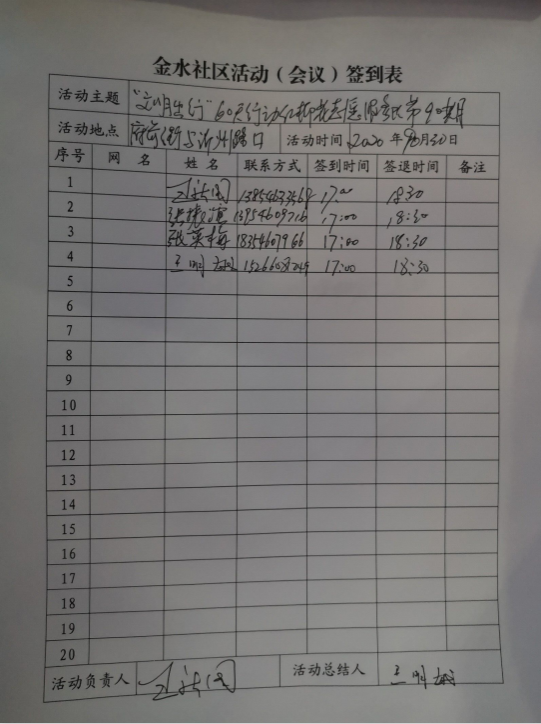 金水社区活动（会议）签到表
活动主题 "文明出行"60天行动 志愿服务 第90期
活动地点 府前街与沂州路口 活动时间 2020年9月30日
序号 网名 姓名 联系方式 签到时间 签退时间 备注
1 17:00 18:30
2 13954609716 17:00 18:30
3 张英梅 18354607966 17:00 18:30
4 王明 17:00 18:30
5
6
7
8
9
10
11
12
13
14
15
16
17
18
19
20
活动负责人 活动总结人 王明